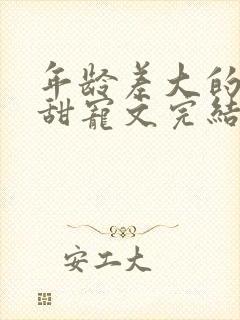 年龄差大的
甜宠文完结
安工大